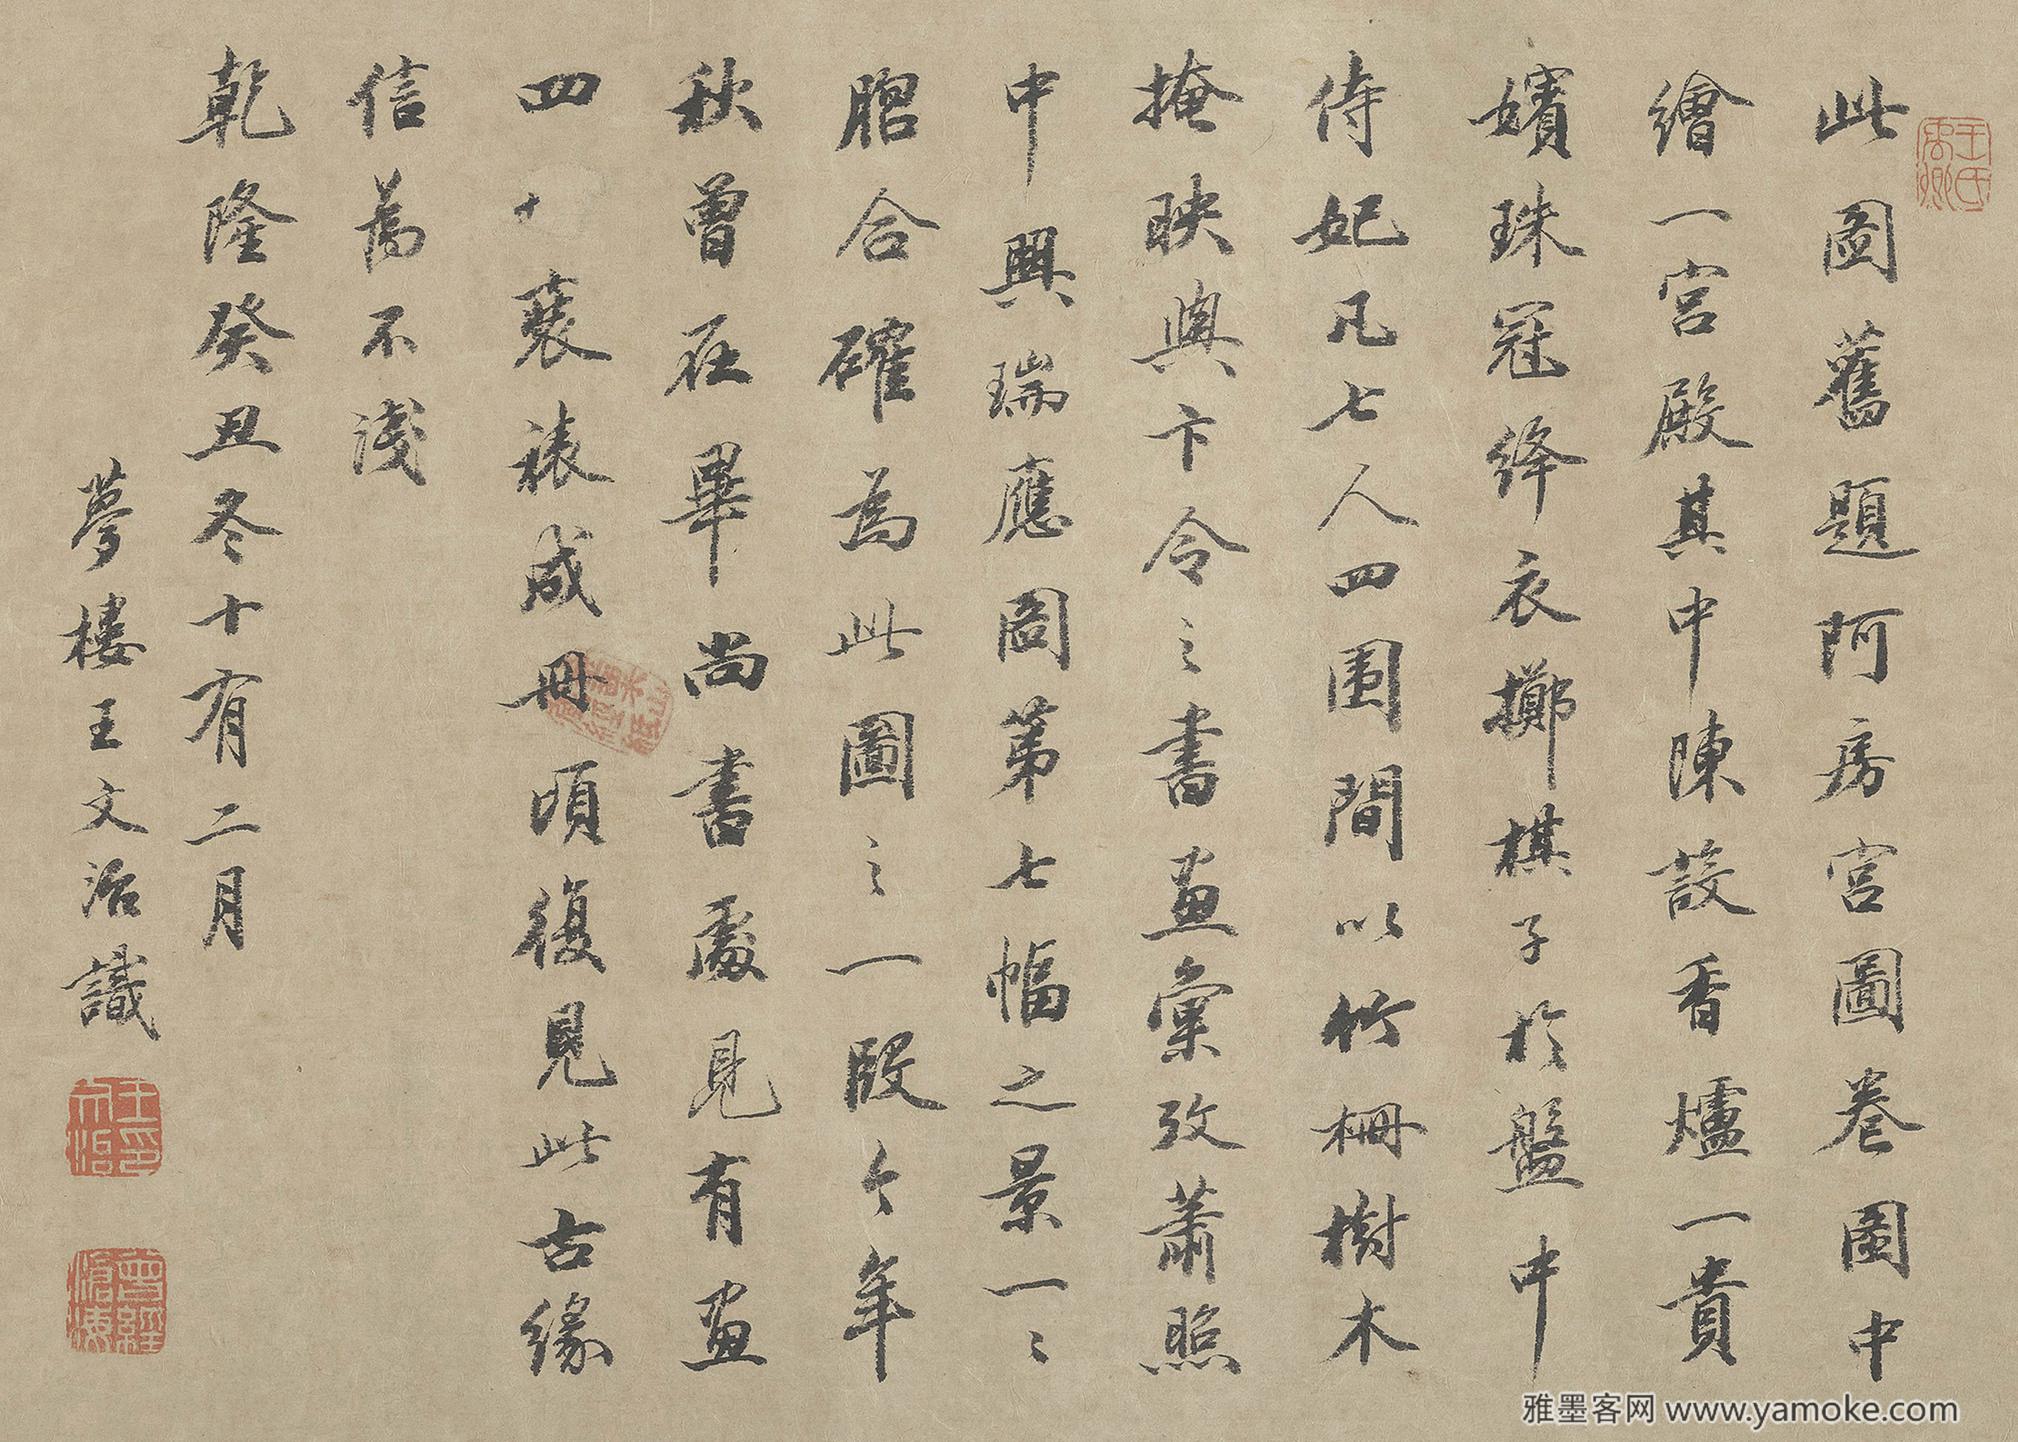 此圖舊題阿房宮圖卷圖中
繪一宮殿其中陳設香爐一貴
嬪珠冠絳衣擲棋子於盤中
侍妃凡七人四圍間以竹柵樹木
掩映與卞令之書畫彙攷蕭照
中興瑞應圖第七幅之景一〻
脗合確為此圖之一段今年
秋曾在畢尚書處見有畫
四十裘裱成冊頃復見此古緣
信為不淺
乾隆癸丑冬十有二月
夢樓王文治識
王氏禹卿
王文治印
曾經滄海
雅墨客网 www.yamoke.com